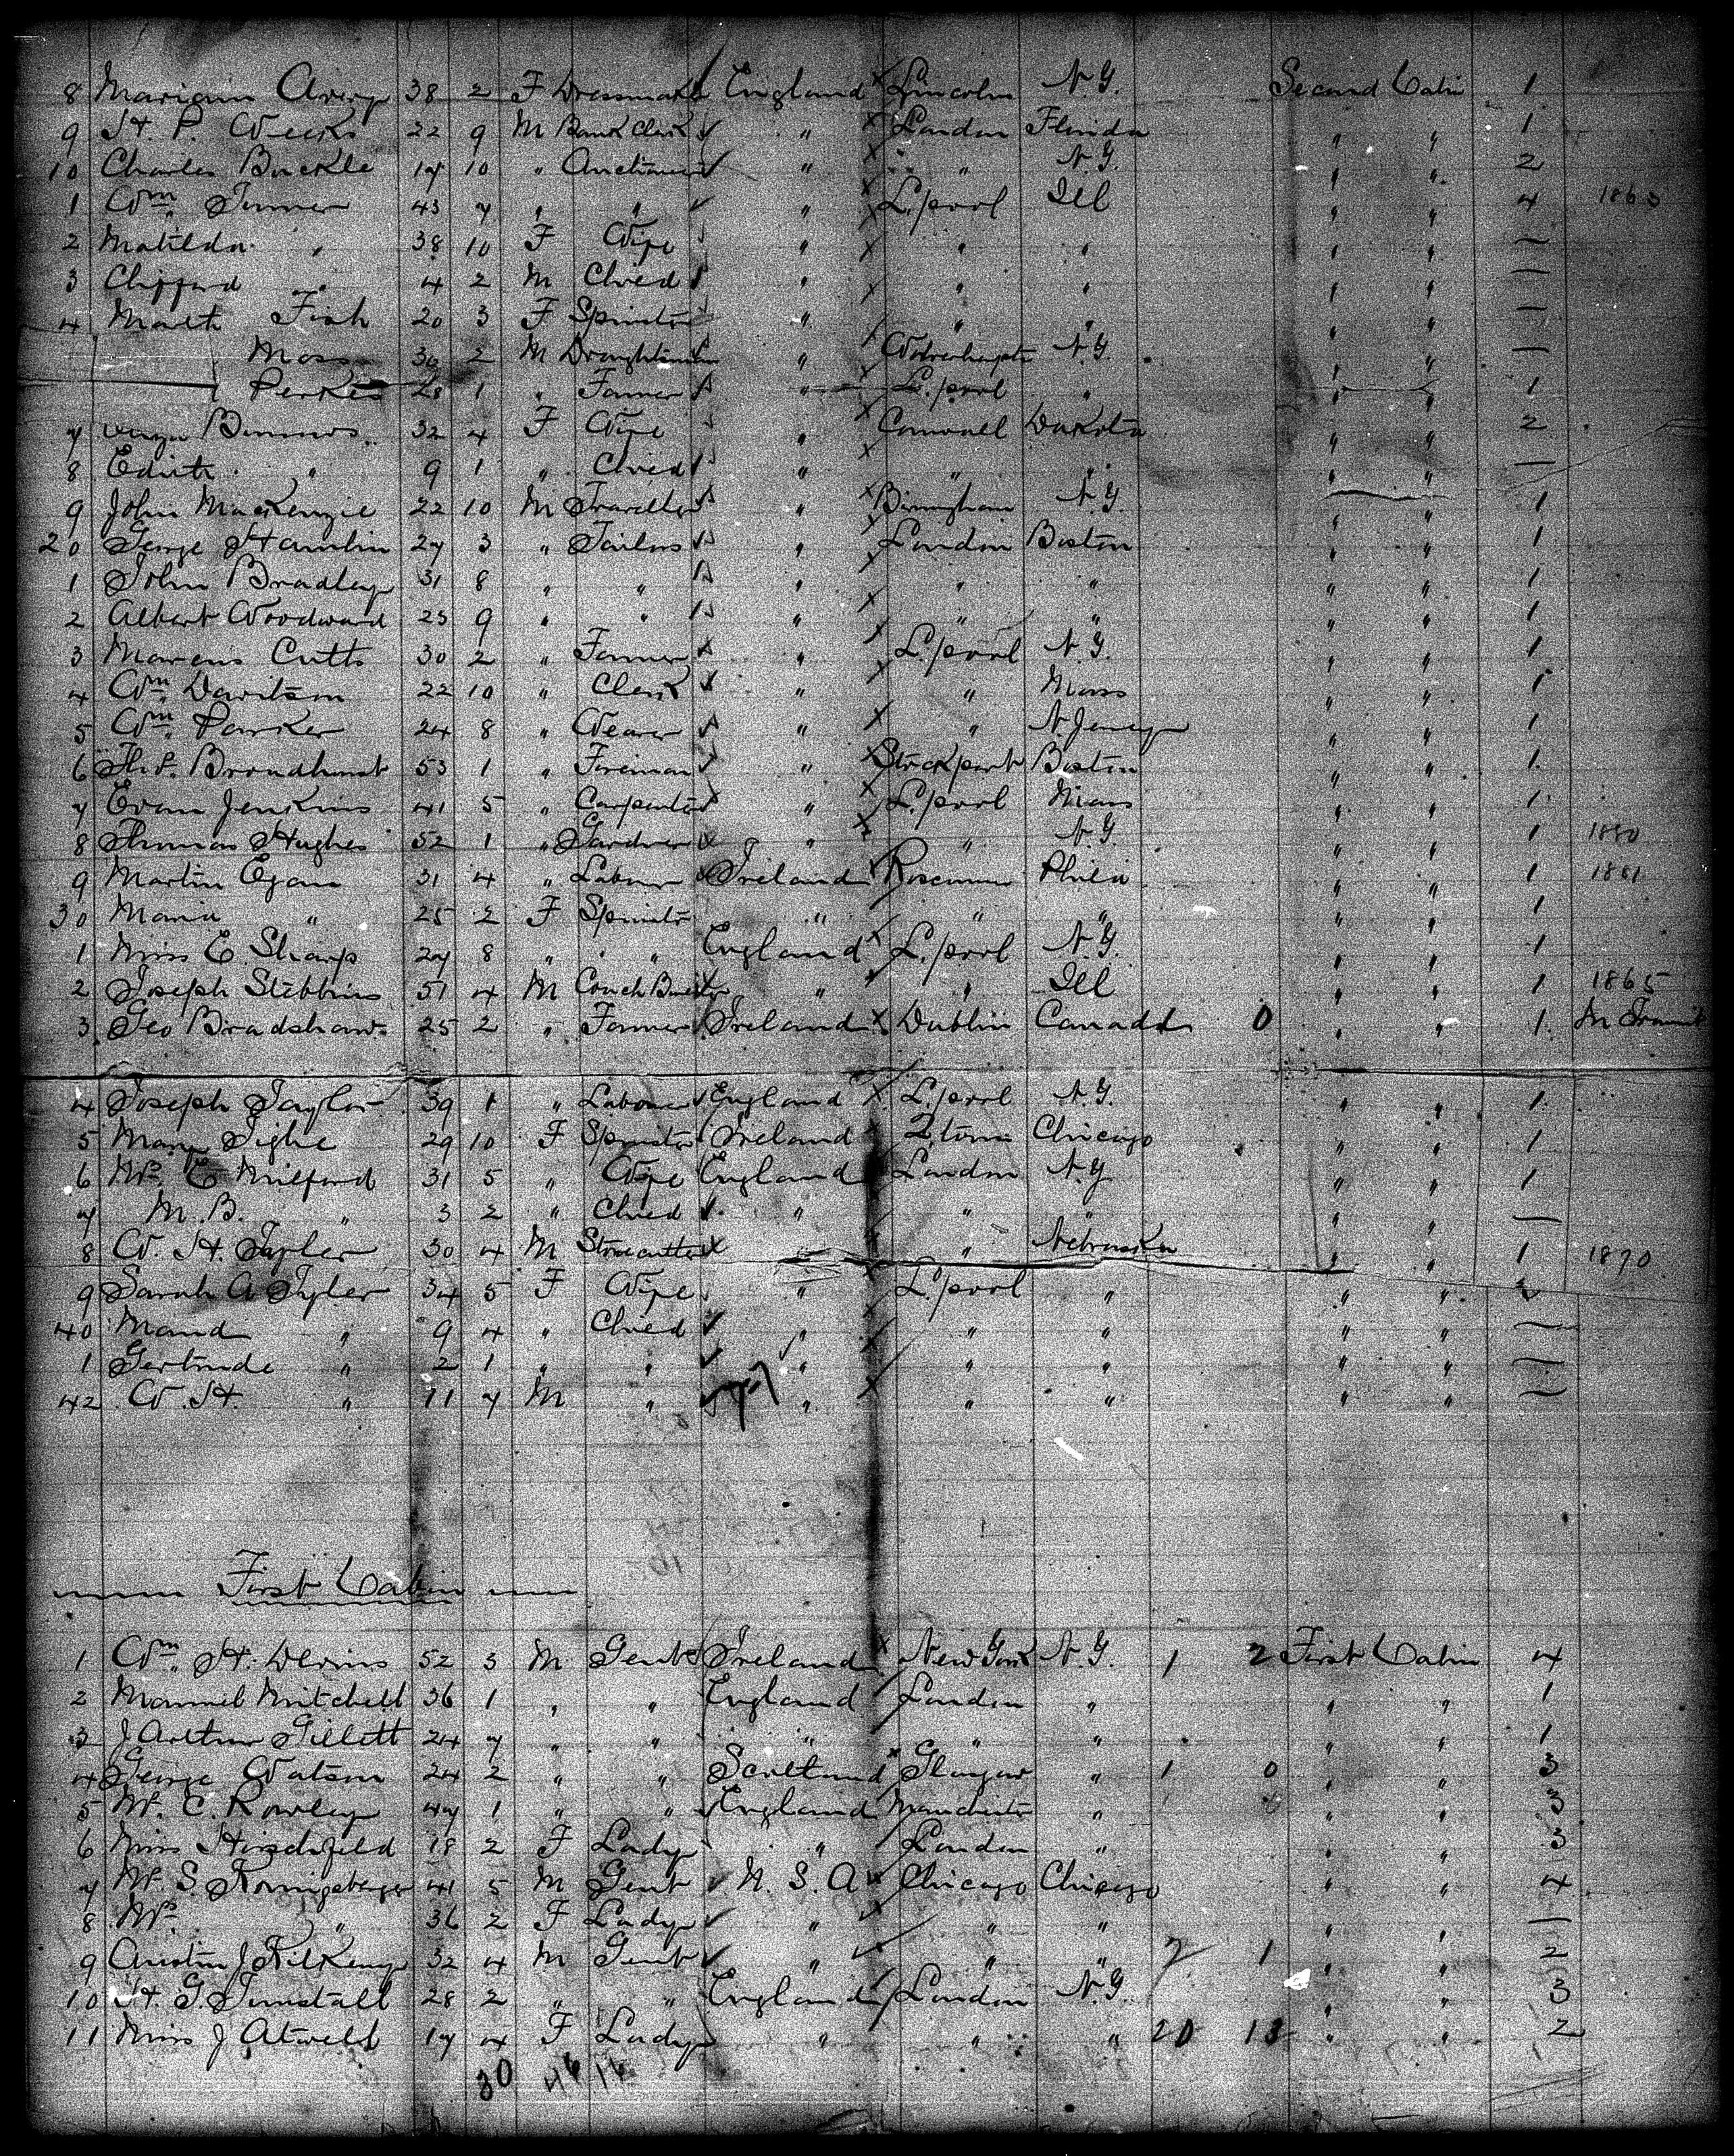 8 Mariann Avery 38 2 F Dressmaker England Lincoln N.Y. Second Cabin 1
9 H. P. Weeks 22 9 M Bank Clerk " London Florida " " 1
10 Charles Buckle 17 10 " " " N.Y. " " 2
1 Wm Turner 43 7 " " " L.pool Ill " " 4 1863
2 Matilda " 38 10 F Wife " " " " " —
3 Clifford " 4 2 M Child " " " " " —
4 Fish 20 3 F Spinster " " " " " —
Moss 30 2 M Draughtsman " N.Y. " " —
Perkes 28 1 " Farmer " L.pool " " " 1
7 32 4 F Wife " Cornwall Dakota " " 2
8 Edith " 9 1 " Child " " " " " —
9 John MacKenzie 22 10 M Traveller " Birmingham N.Y. " " 1
20 George Hamlin 27 3 " Tailor " London Boston " " 1
1 John Bradley 31 8 " " " " " " " 1
2 Albert Woodward 23 9 " " " " " " " 1
3 Cutts 30 2 " Farmer " L.pool N.Y. " " 1
4 Wm Davitson 22 10 " Clerk " " Mass " " 1
5 Wm Parker 24 8 " Weaver " " N. Jersey " " 1
6 Broadhurst 53 1 " Foreman " Stockport Boston " " 1
7 Evan Jenkins 41 5 " Carpenter " L.pool Mass " " 1
8 Thomas Hughes 52 1 " Gardner " " N.Y. " " 1 1880
9 Martin Egan 31 4 " Labourer Ireland Phila " " 1 1881
30 Maria " 25 2 F Spinster " " " " " 1
1 Miss E. Sharp 27 8 " " England L.pool N.Y. " " 1
2 Joseph Stebbins 51 4 M Coach Builder " " Ill " " 1 1865
3 Geo Bradshaw 25 2 " Farmer Ireland Dublin Canada 0 " " 1 In Transit
4 Joseph Taylor 39 1 " Labourer England L.pool N.Y. " " 1
5 Mary Tighe 29 10 F Spinster Ireland Q.town Chicago " " 1
6 Mrs E Milford 31 5 " Wife England London N.Y. " " 1
7 M. B. " 3 2 " Child " " " " " —
8 W. H. Tyler 30 4 M Stonecutter " Nebraska " " 1 1870
9 Sarah A Tyler 34 5 F Wife " L.pool " " " 2
40 Maud " 9 4 " Child " " " " " —
1 Gertrude " 2 1 " " " " " " " —
42 W. H. " 11 7 M " " " " " " —
First Cabin
1 Wm H. Devins 52 3 M Gent Ireland New York N.Y. 1 2 First Cabin 4
2 Manuel Mitchell 36 1 " " England London " " " 1
3 J Arthur Gillett 24 7 " " " " " " " 1
4 George Watson 24 2 " " Scotland Glasgow " 1 0 " " 3
5 Mr. C. Rowley 47 1 " " England Manchester " " " 3
6 Miss Hirschfeld 18 2 F Lady " London " " " 3
7 Mr. S. Konigsberger 41 5 M Gent U. S. A Chicago Chicago " " 4
8 Mrs " 36 2 F Lady " " " " " —
9 32 4 M Gent " " " 2 1 " " 2
10 H. G. Tunstall 28 2 " " England London N.Y. " " 3
11 Miss J Atwell 17 4 F Lady " " " 20 13 " " 2
30 46 16